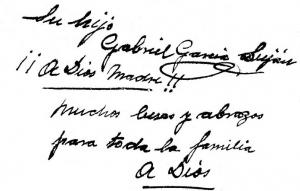 Su hijo
Gabriel Garcia Luján
¡¡A Dios Madre!!
Muchos besos y abrazos
para toda la familia
A Dios